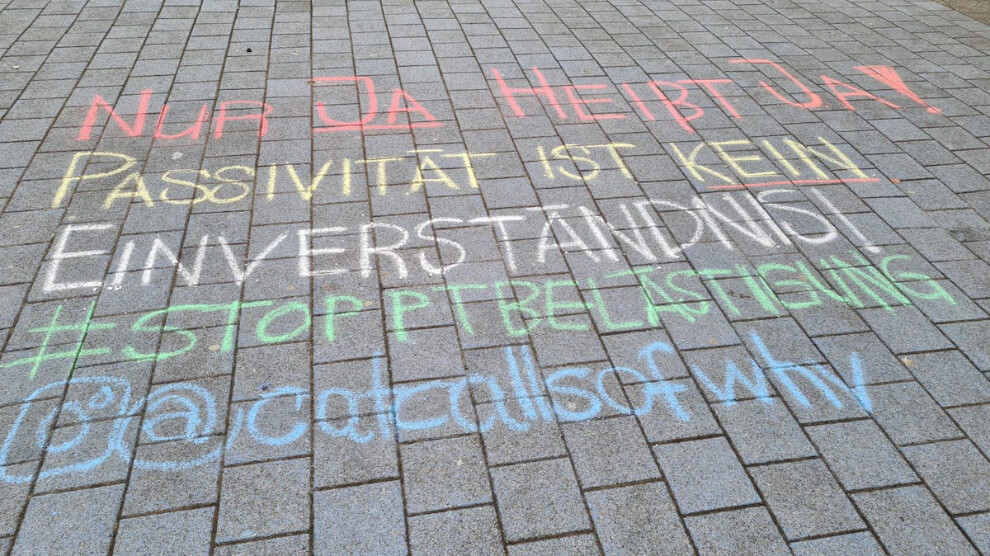 NUR JA HEIßT JA!
PASSIVITÄT IST KEIN
EINVERSTÄNDNIS!
#STOPPTBELÄSTIGUNG
@catcallsofwhv